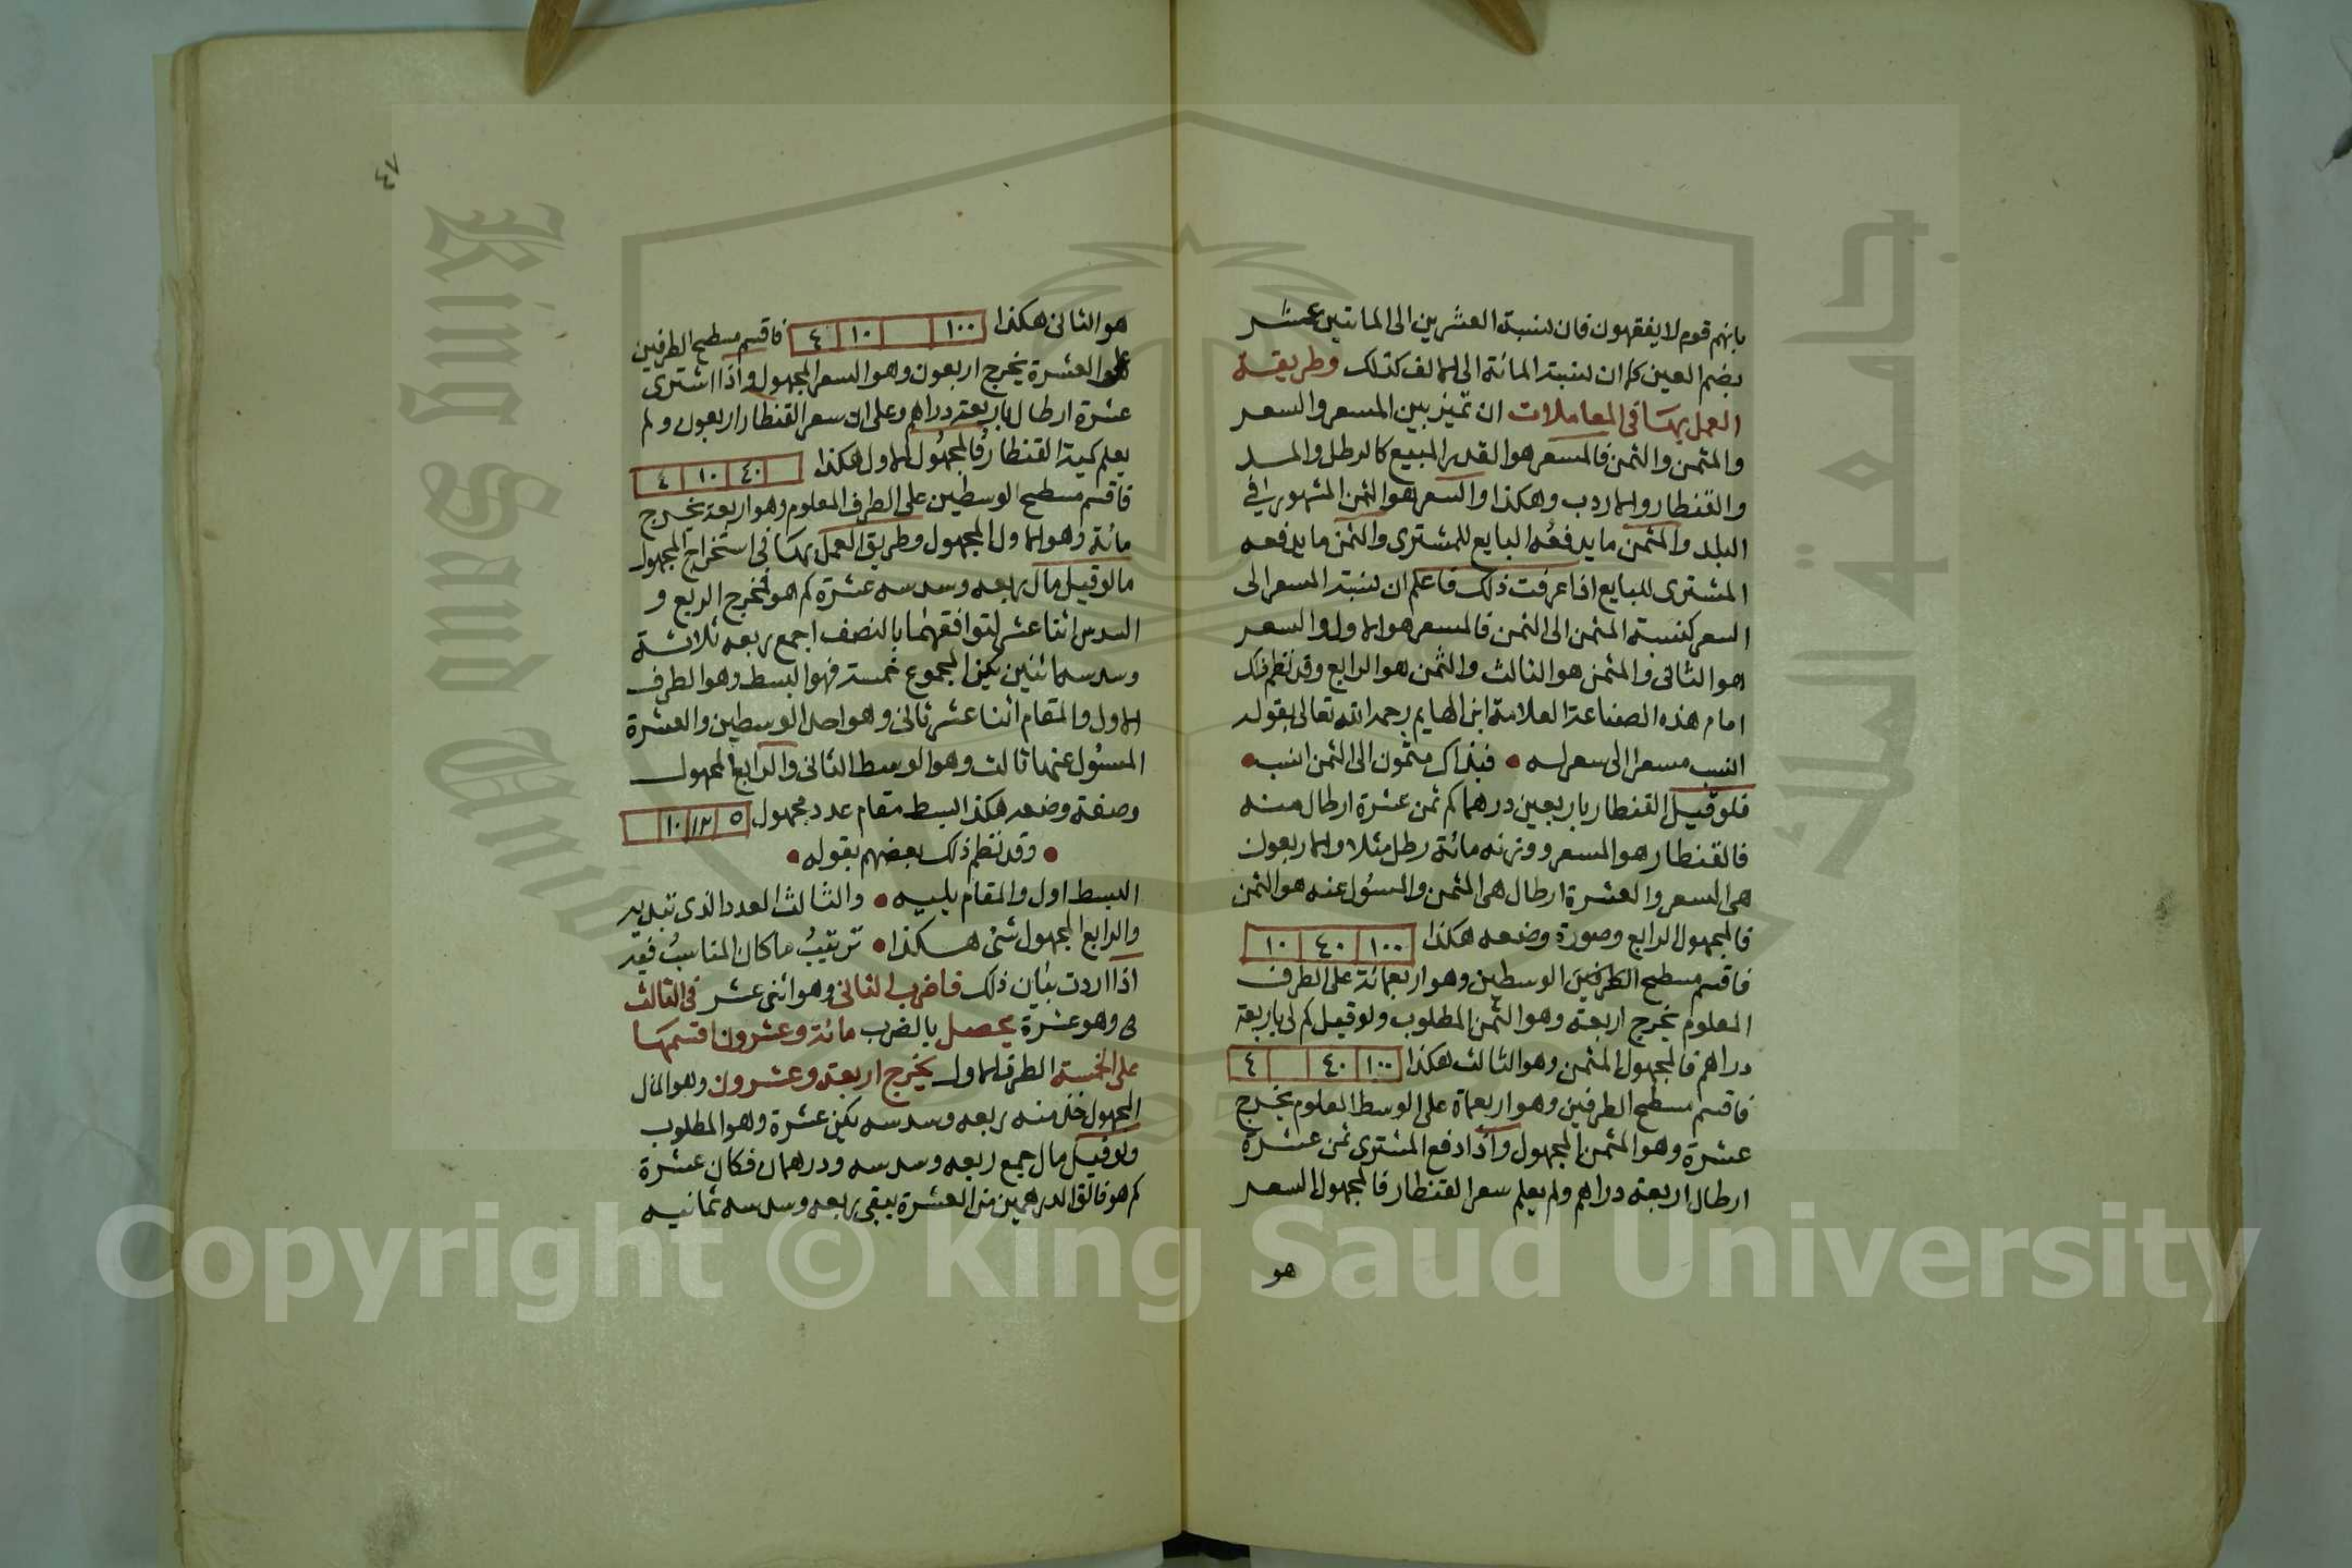 بانهم قوم لا يفقهون فان نسبة العشرين الى الماتين عشر
بضم العين كما ان نسبة المائة الى الالف كذلك وطريقة
العمل بها فى المعاملات ان تميز بين المسعر والسعر
والمثمن والثمن فالمسعر هو القدر المبيع كالرطل والمد
والقنطار والاردب وهكذا والسعر هو الثمن المشهور فى
البلد والمثمن ما يدفعه البايع للمشترى والثمن ما يدفعه
المشترى للبايع اذا عرفت ذلك فاعلم ان نسبة المسعر الى
السعر كنسبة المثمن الى الثمن فالمسعر هو الاول والسعر
هو الثانى والمثمن هو الثالث والثمن هو الرابع وقد نظم ذلك
امام هذه الصناعة العلامة ابن الهايم رحمه الله تعالى بقوله
انسب مسعرا الى سعر له • فبذاك مثمون الى الثمن انسب •
فلو قيل القنطار باربعين درهما كم ثمن عشرة ارطال منه
فالقنطار هو المسعر ووزنه مائة رطل مثلا والاربعون
هى السعر والعشرة ارطال هى المثمن والمسؤل عنه هو الثمن
فالمجهول الرابع وصورة وضعه هكذا ١٠٠ ٤٠ ١٠
فاقسم مسطح الطرفين الوسطين وهو اربعمائة على الطرف
المعلوم يخرج اربعة وهو الثمن المطلوب ولو قيل كم لى باربعة
دراهم فالمجهول المثمن وهو الثالث هكذا ١٠٠ ٤٠ ٤
فاقسم مسطح الطرفين وهو اربعماة على الوسط المعلوم يخرج
عشرة وهو المثمن المجهول واذا دفع المشترى ثمن عشرة
ارطال اربعة دراهم ولم يعلم سعر القنطار فالمجهول السعر
هو
٤٧
هو الثانى هكذا ١٠٠ ١٠ ٤ فاقسم مسطح الطرفين
على العشرة يخرج اربعون وهو السعر المجهول واذا اشترى
عشرة ارطال باربعة دراهم وعلى ان سعر القنطار اربعون ولم
يعلم كمية القنطار فالمجهول الاول هكذا ٤٠ ١٠ ٤
فاقسم مسطح الوسطين على الطرف المعلوم وهو اربعة يخرج
مائة وهو الاول المجهول وطريق العمل بها فى استخراج المجهول
ما لو قيل مال ربعه وسدسه عشرة كم هو فمخرج الربع و
السدس اثنا عشر لتوافقهما بالنصف اجمع ربعه ثلاثة
وسدسه اثنين يكن المجموع خمسة فهو البسط وهو الطرف
الاول والمقام اثنا عشر ثانى وهو احد الوسطين والعشرة
المسئول عنها ثالث وهو الوسط الثانى والرابع المجهول
وصفة وضعه هكذا البسط مقام عدد مجهول ٥ ١٢ ١٠
• وقد نظم ذلك بعضهم بقوله •
البسط اول والمقام يليه • والثالث العدد الذى تبديه
والرابع المجهول شئ هكذا • ترتيب ما كان المناسب فيه
اذا اردت بيان ذلك فاضرب الثانى وهو اثنى عشر فى الثالث
وهو عشرة يحصل بالضرب مائة وعشرون اقسمها
على الخمسة الطرف الاول يخرج اربعة وعشرون وهو المال
المجهول خذ منه ربعه وسدسه يكن عشرة وهو المطلوب
ولو قيل مال جمع ربعه وسدسه ودرهمان فكان عشرة
كم هو فالق الدرهمين من العشرة يبقى ربعه وسدسه ثمانيه
Copyright © King Saud University
King Saud